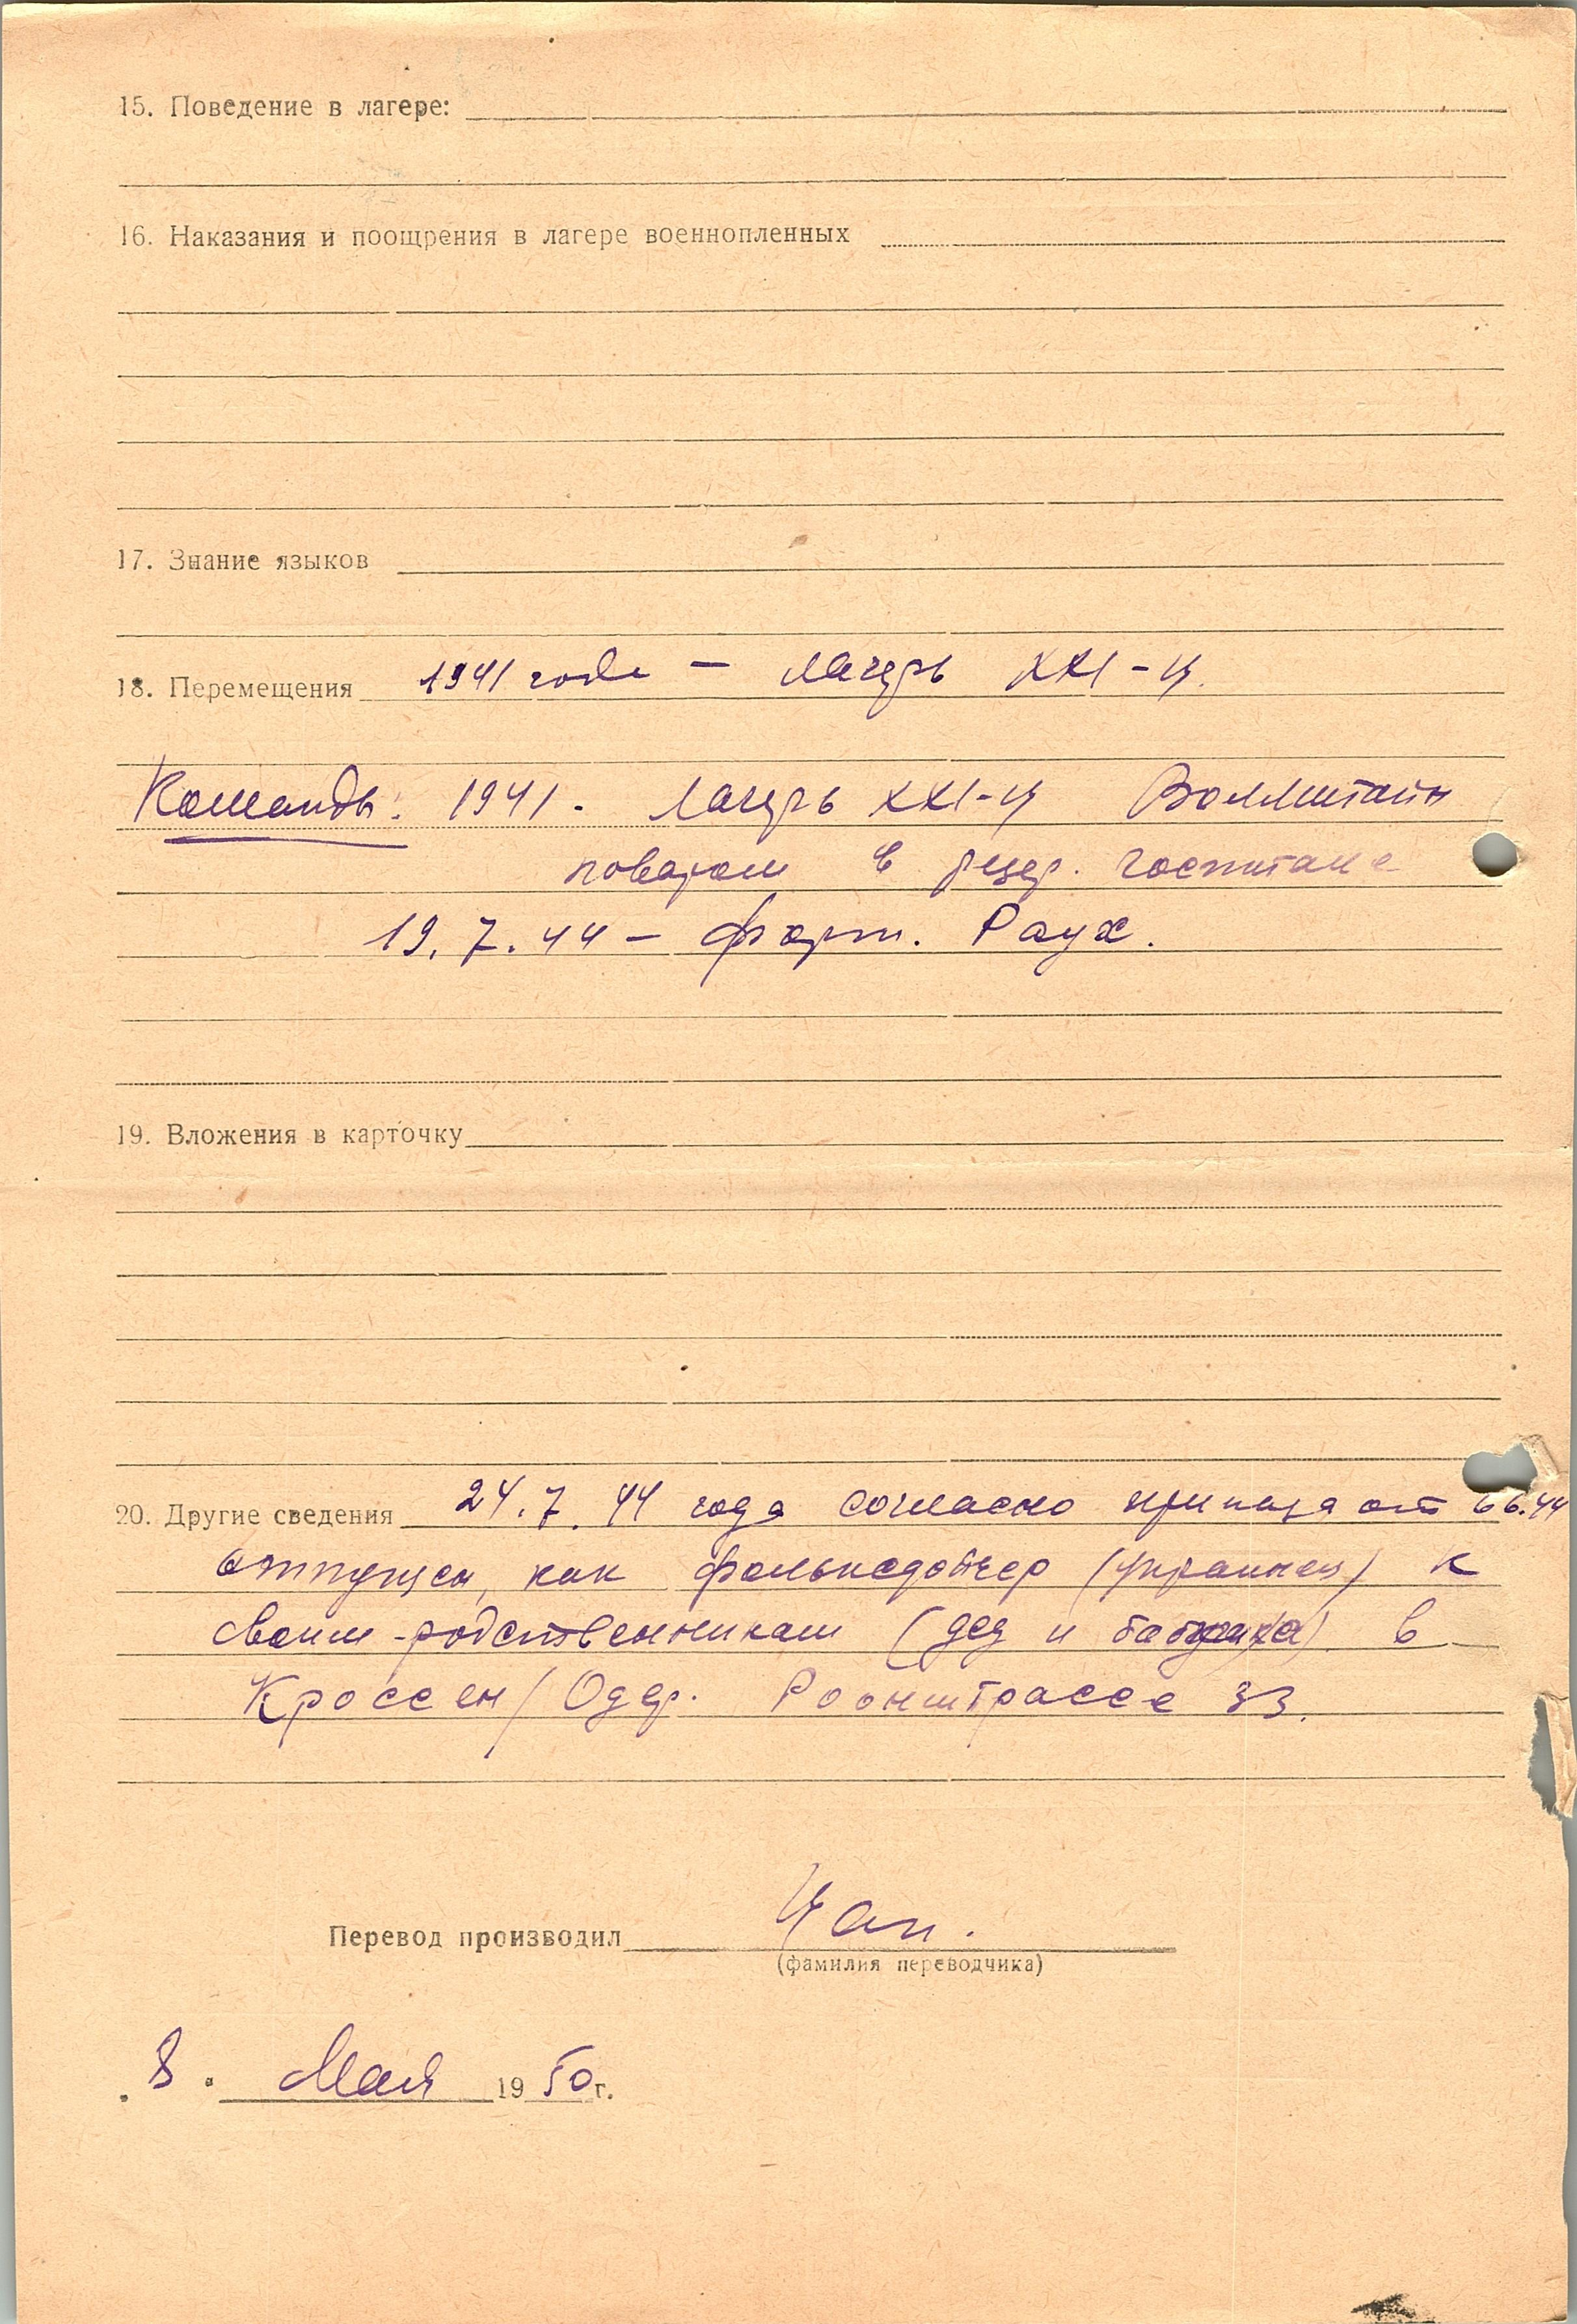 15. Поведение в лагере:
16. Наказания и поощрения в лагере военнопленных
17. Знание языков
18. Перемещения 1941 года — лагерь XXI-Ц.
Команды: 1941. Лагерь XXI-Ц Воллштайн
поваром в резер. госпитале
19.7.44 — форт. Раух.
19. Вложения в карточку
20. Другие сведения 24.7.44 года согласно приказа от 6.6.44
отпущен, как фольксдойчер (украинец) к
своим родственникам (дед и бабушка) в
Кроссен/Одер. Роонштрассе 33.
Перевод производил Цап.
(фамилия переводчика)
8. Мая 1950 г.